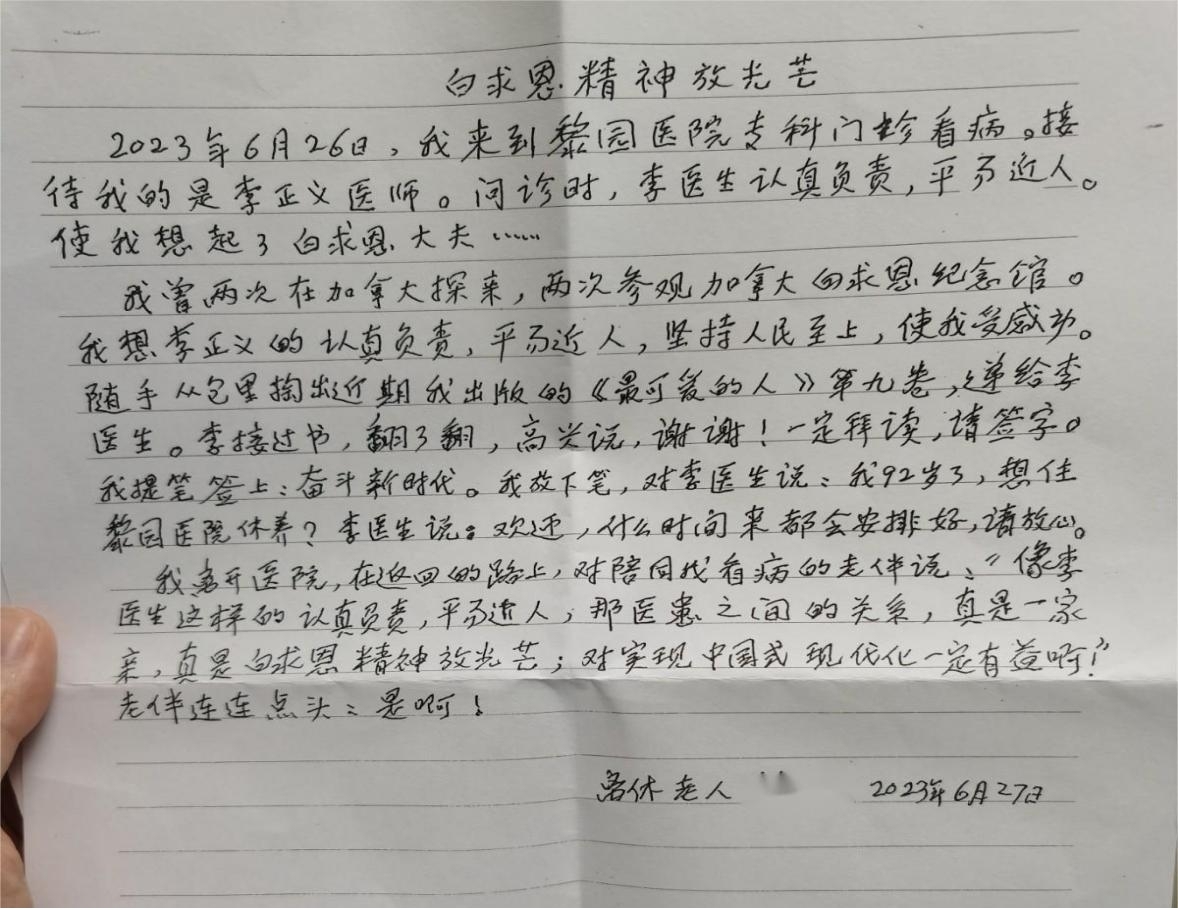 白求恩精神放光芒
2023年6月26日，我来到黎园医院专科门诊看病。接
待我的是李正义医师。问诊时，李医生认真负责，平易近人。
使我想起了白求恩大夫……
我曾两次在加拿大探亲，两次参观加拿大白求恩纪念馆。
我想李正义的认真负责，平易近人，坚持人民至上，使我受感动。
随手从包里掏出近期我出版的《最可爱的人》第九卷，递给李
医生。李接过书，翻了翻，高兴说，谢谢！一定拜读，请签字。
我提笔签上：奋斗新时代。我放下笔，对李医生说：我92岁了，想住
黎园医院休养？李医生说：欢迎，什么时间来都会安排好，请放心。
我离开医院，在返回的路上，对陪同我看病的老伴说：“像李
医生这样的认真负责，平易近人，那医患之间的关系，真是一家
亲，真是白求恩精神放光芒；对实现中国式现代化一定有益啊！”
老伴连连点头：是啊！
离休老人 2023年6月27日